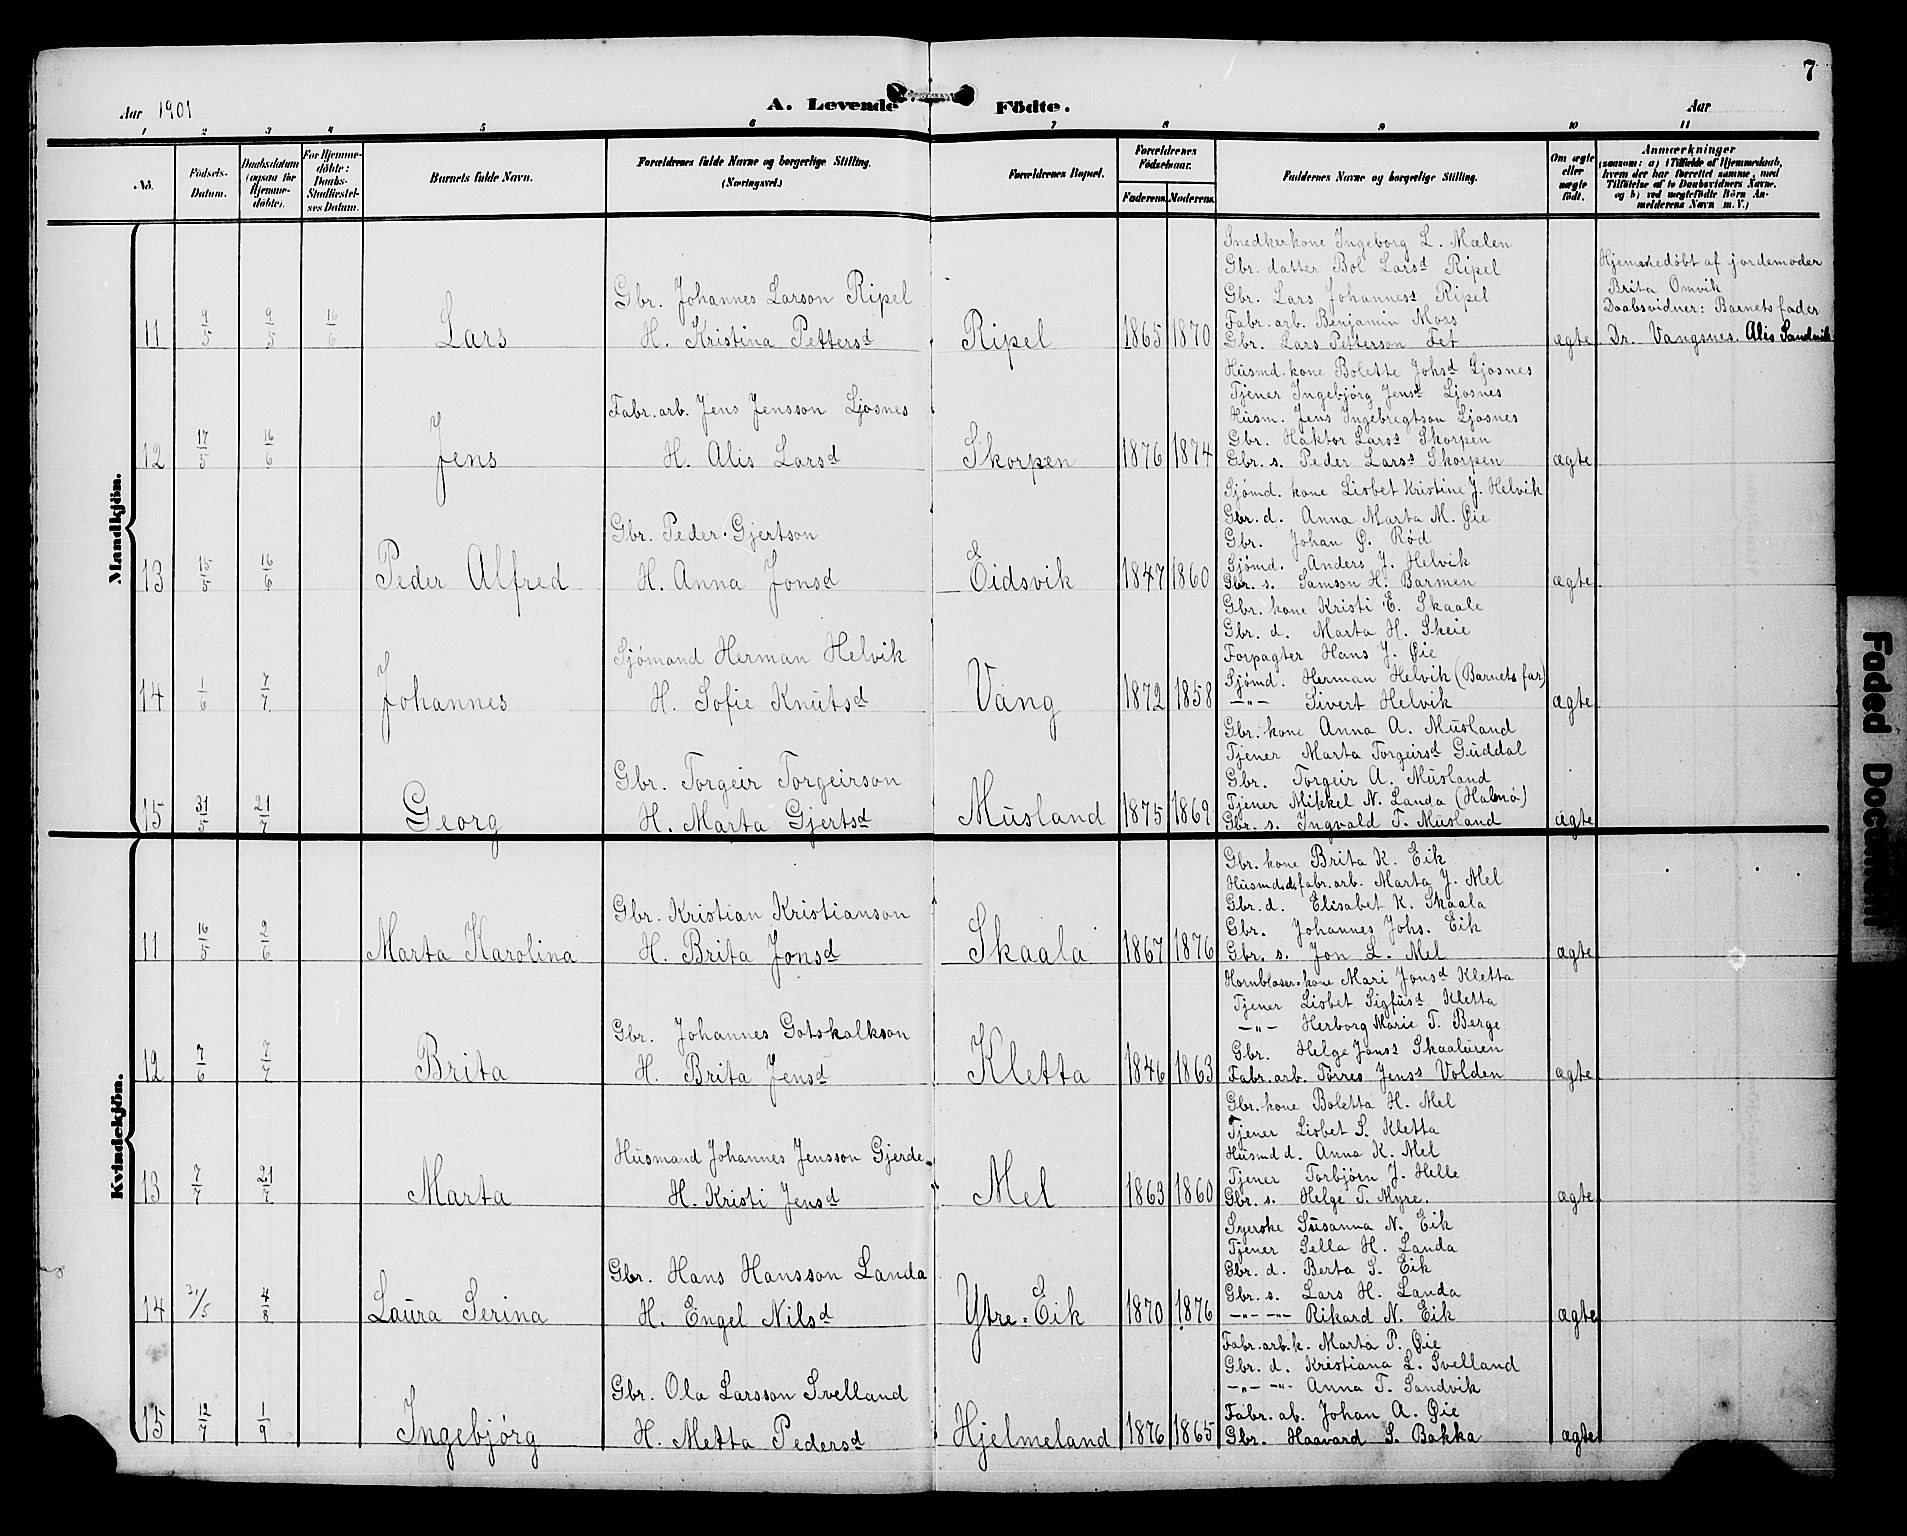 7
Aar 1901
A. Levende Födte.
Aar
1 2 3 4 5 6 7 8 9 10 11
No.
Födsels-Datum.
Daabsdatum (ogsaa for Hjemme-döbte).
For Hjemme-döbte: Daabs-Stadfæstel-ses Datum.
Barnets fulde Navn.
Forældrenes fulde Navne og borgerlige Stilling. (Næringsvei.)
Forældrenes Bopæl.
Forældrenes Födselsaar.
Faderens. Moderens.
Faddernes Navne og borgerlige Stilling.
Om ægte eller uægte födt.
Anmærkninger
(saasom: a) i Tilfælde af Hjemmedaab, hvem der har forrettet samme, med Tilföielse af to Daabsvidners Navne, og b) ved uægtefödte Börn An-melderens Navn m. V.)
Mandkjön.
11 9/5 9/5 16/6 Lars
Gbr. Johannes Larson Ripel
H. Kristina Pettersd
Ripel 1865 1870
Snedkerkone Ingeborg L. Mælen
Gbr. datter Bol Larsd Ripel
Gbr. Lars Johanness Ripel
Fabr. arb. Benjamin Moss
Gbr. Lars Petterson Fet
ægte
Hjemmedöbt af jordemoder
Brita Omvik
Daabsvidner: Barnets fader
Dr. Vangsnes. Alis Sandvik
12 17/5 16/6 Jens
Fabr. arb. Jens Jensson Ljosnes
H. Alis Larsd
Skorpen 1876 1874
Husmd. kone Bolette Johsd Ljosnes
Tjener Ingebjørg Jensd Ljosnes
Husm. Jens Ingebregtson Ljosnes
Gbr. Haktor Larss Skorpen
Gbr. s. Peder Larss Skorpen
ægte
13 15/5 16/6 Peder Alfred
Gbr. Peder Gjertson
H. Anna Jonsd
Eidsvik 1847 1860
Sjömd. kone Lisbet Kristine J. Helvik
Gbr. d. Anna Marta M. Øie
Gbr. Johan Ø. Röd
Sjömd. Anders J. Helvik
Gbr. s. Samson H. Barmen
ægte
14 1/6 7/7 Johannes
Sjömand Herman Helvik
H. Sofie Knutsd
Vang 1872 1858
Gbr. kone Kristi E. Skaale
Gbr. d. Marta H. Skeie
Forpagter Hans J. Øie
Sjömd. Herman Helvik (Barnets far)
—"— Sivert Helvik
ægte
15 31/5 21/7 Georg
Gbr. Torgeir Torgeirson
H. Marta Gjertsd
Musland 1875 1869
Gbr. kone Anna A. Musland
Tjener Marta Torgeirsd Guddal
Gbr. Torgeir A. Musland
Tjener Mikkel N. Landa (Halsnö)
Gbr. s. Ingvald T. Musland
ægte
Kvindekjön.
11 16/5 12/6 Marta Karolina
Gbr. Kristian Kristianson
H. Brita Jonsd
Skaala 1867 1876
Gbr. kone Brita K. Eik
Husmd. d. fabr. arb. Marta J. Mel
Gbr. d. Elisabet K. Skaala
Gbr. Johannes Johs. Eik
Gbr. s. Jon L. Mel
ægte
12 7/6 7/7 Brita
Gbr. Johannes Gotskalkson
H. Brita Jensd
Kletta 1846 1863
Hornblaser-kone Mari Jonsd Kletta
Tjener Lisbet Sigfusd Kletta
—"— Herborg Marie T. Berge
Gbr. Helge Jonss Skaaluren
Fabr. arb. Torres Jenss Volden
ægte
13 7/7 21/7 Marta
Husmand Johannes Jensson Gjerde
H. Kristi Jensd
Mel 1863 1860
Gbr. kone Boletta H. Mel
Tjener Lisbet S. Kletta
Husmd d. Anna K. Mel
Tjener Torbjörn J. Helle
Gbr. s. Helge T. Myre.
ægte
14 31/5 4/8 Laura Serina
Gbr. Hans Hansson Landa
H. Engel Nilsd
Ytre-Eik 1870 1876
Syerske Susanna N. Eik
Tjener Sella H. Landa
Gbr. d. Berta S. Eik
Gbr. s. Lars H. Landa
—"— —"— Rikard N. Eik
ægte
15 12/7 1/9 Ingebjörg
Gbr. Ola Larsson Svelland
H. Metta Pedersd
Hjelmeland 1876 1865
Fabr. arb. k. Marta P. Øie
Gbr. d. Kristiana L. Svelland
—"— —"— Anna T. Sandvik
Fabr. ab. Johan A. Øie
Gbr. Haavard S. Bakka
ægte
Faded Document